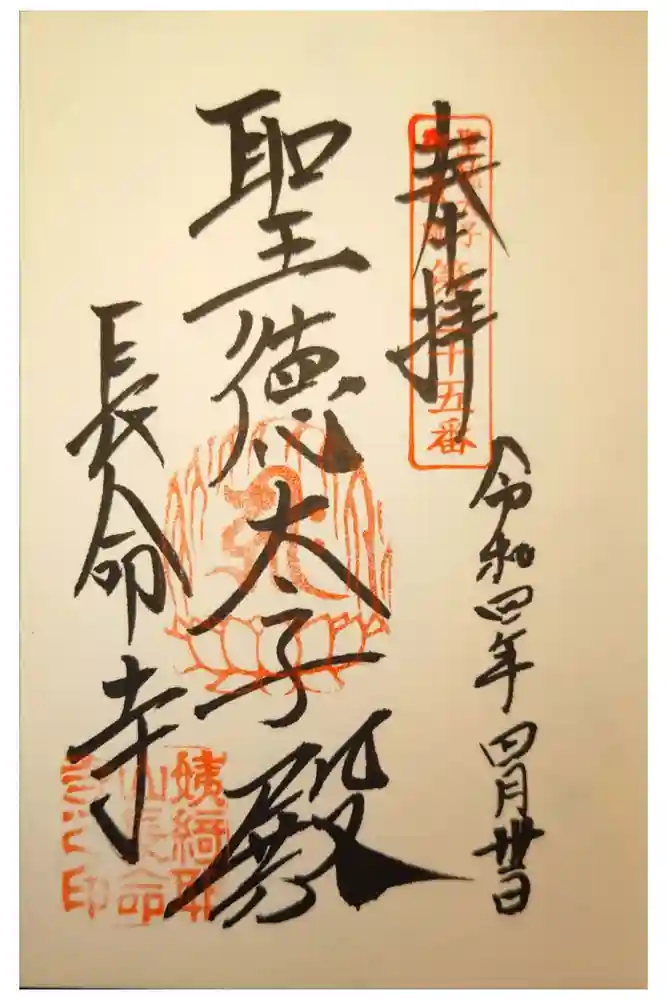 奉拝
聖徳太子
十五番
令和四年四月卅日
聖徳太子殿
長命寺
姨綺耶
山長命
寺之印